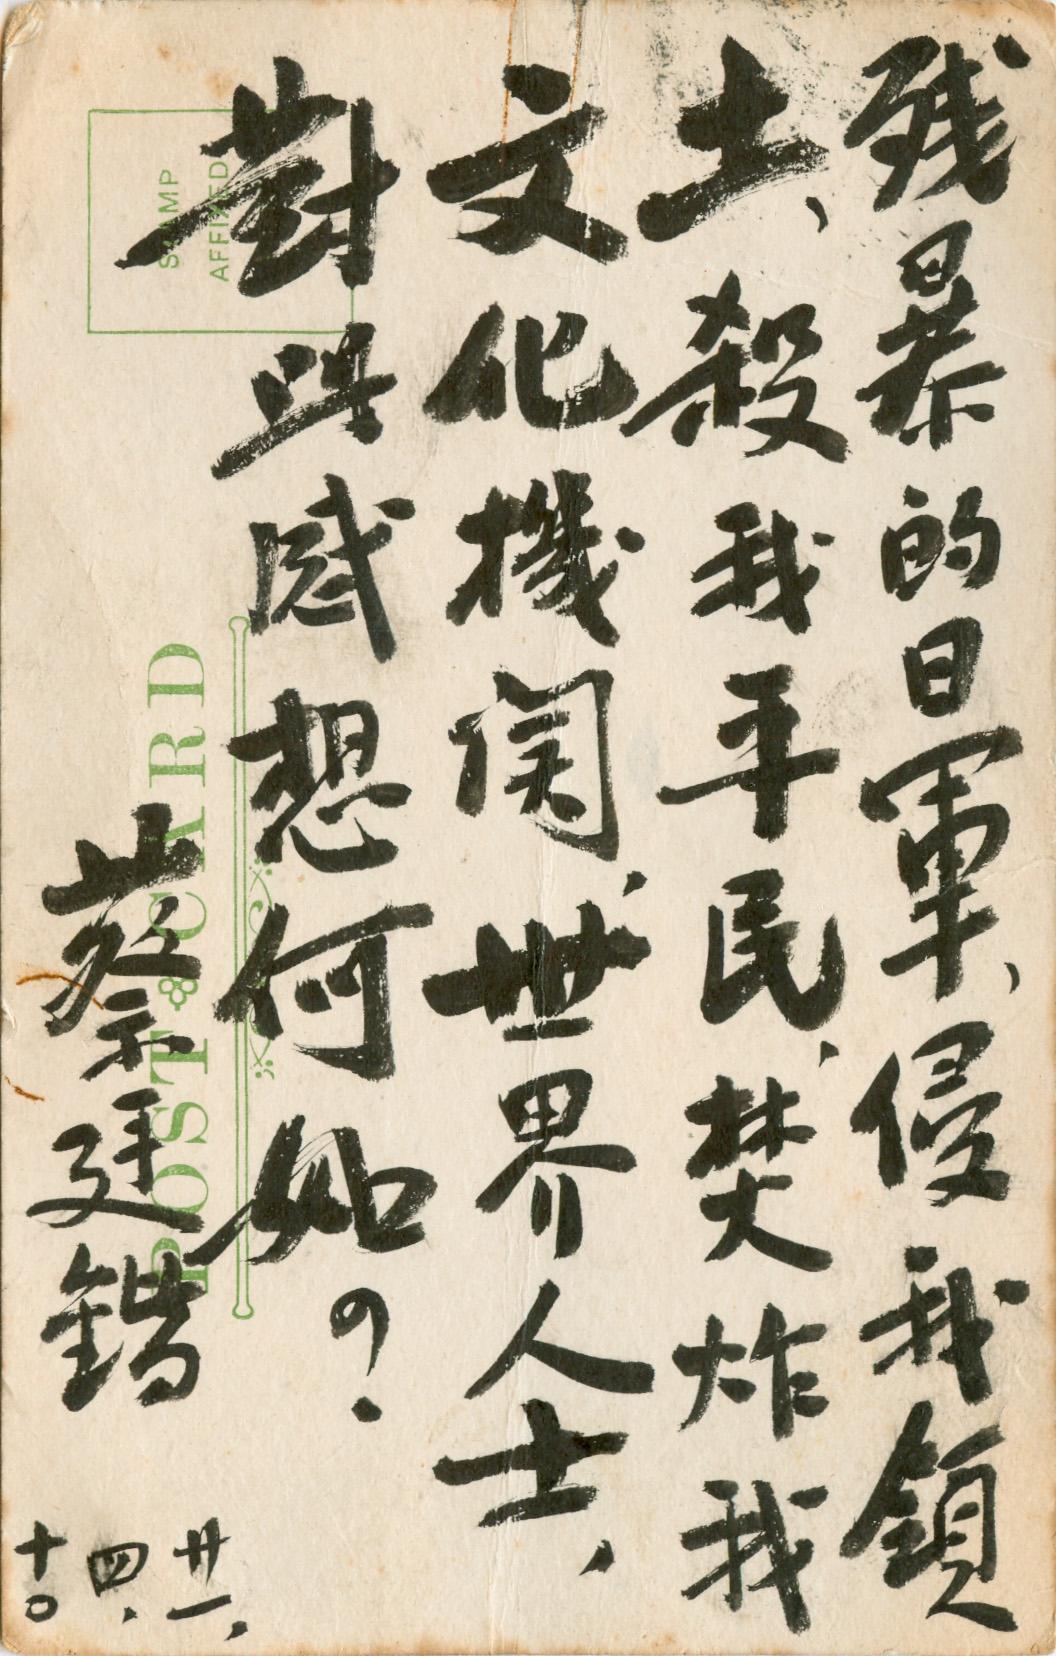 残暴的日軍、侵我領
土、殺我平民、焚炸我
文化機関、世界人士、
對此感想何如?
蔡廷鍇
廿一、
四、
十○
POST CARD
STAMP
AFFIXED